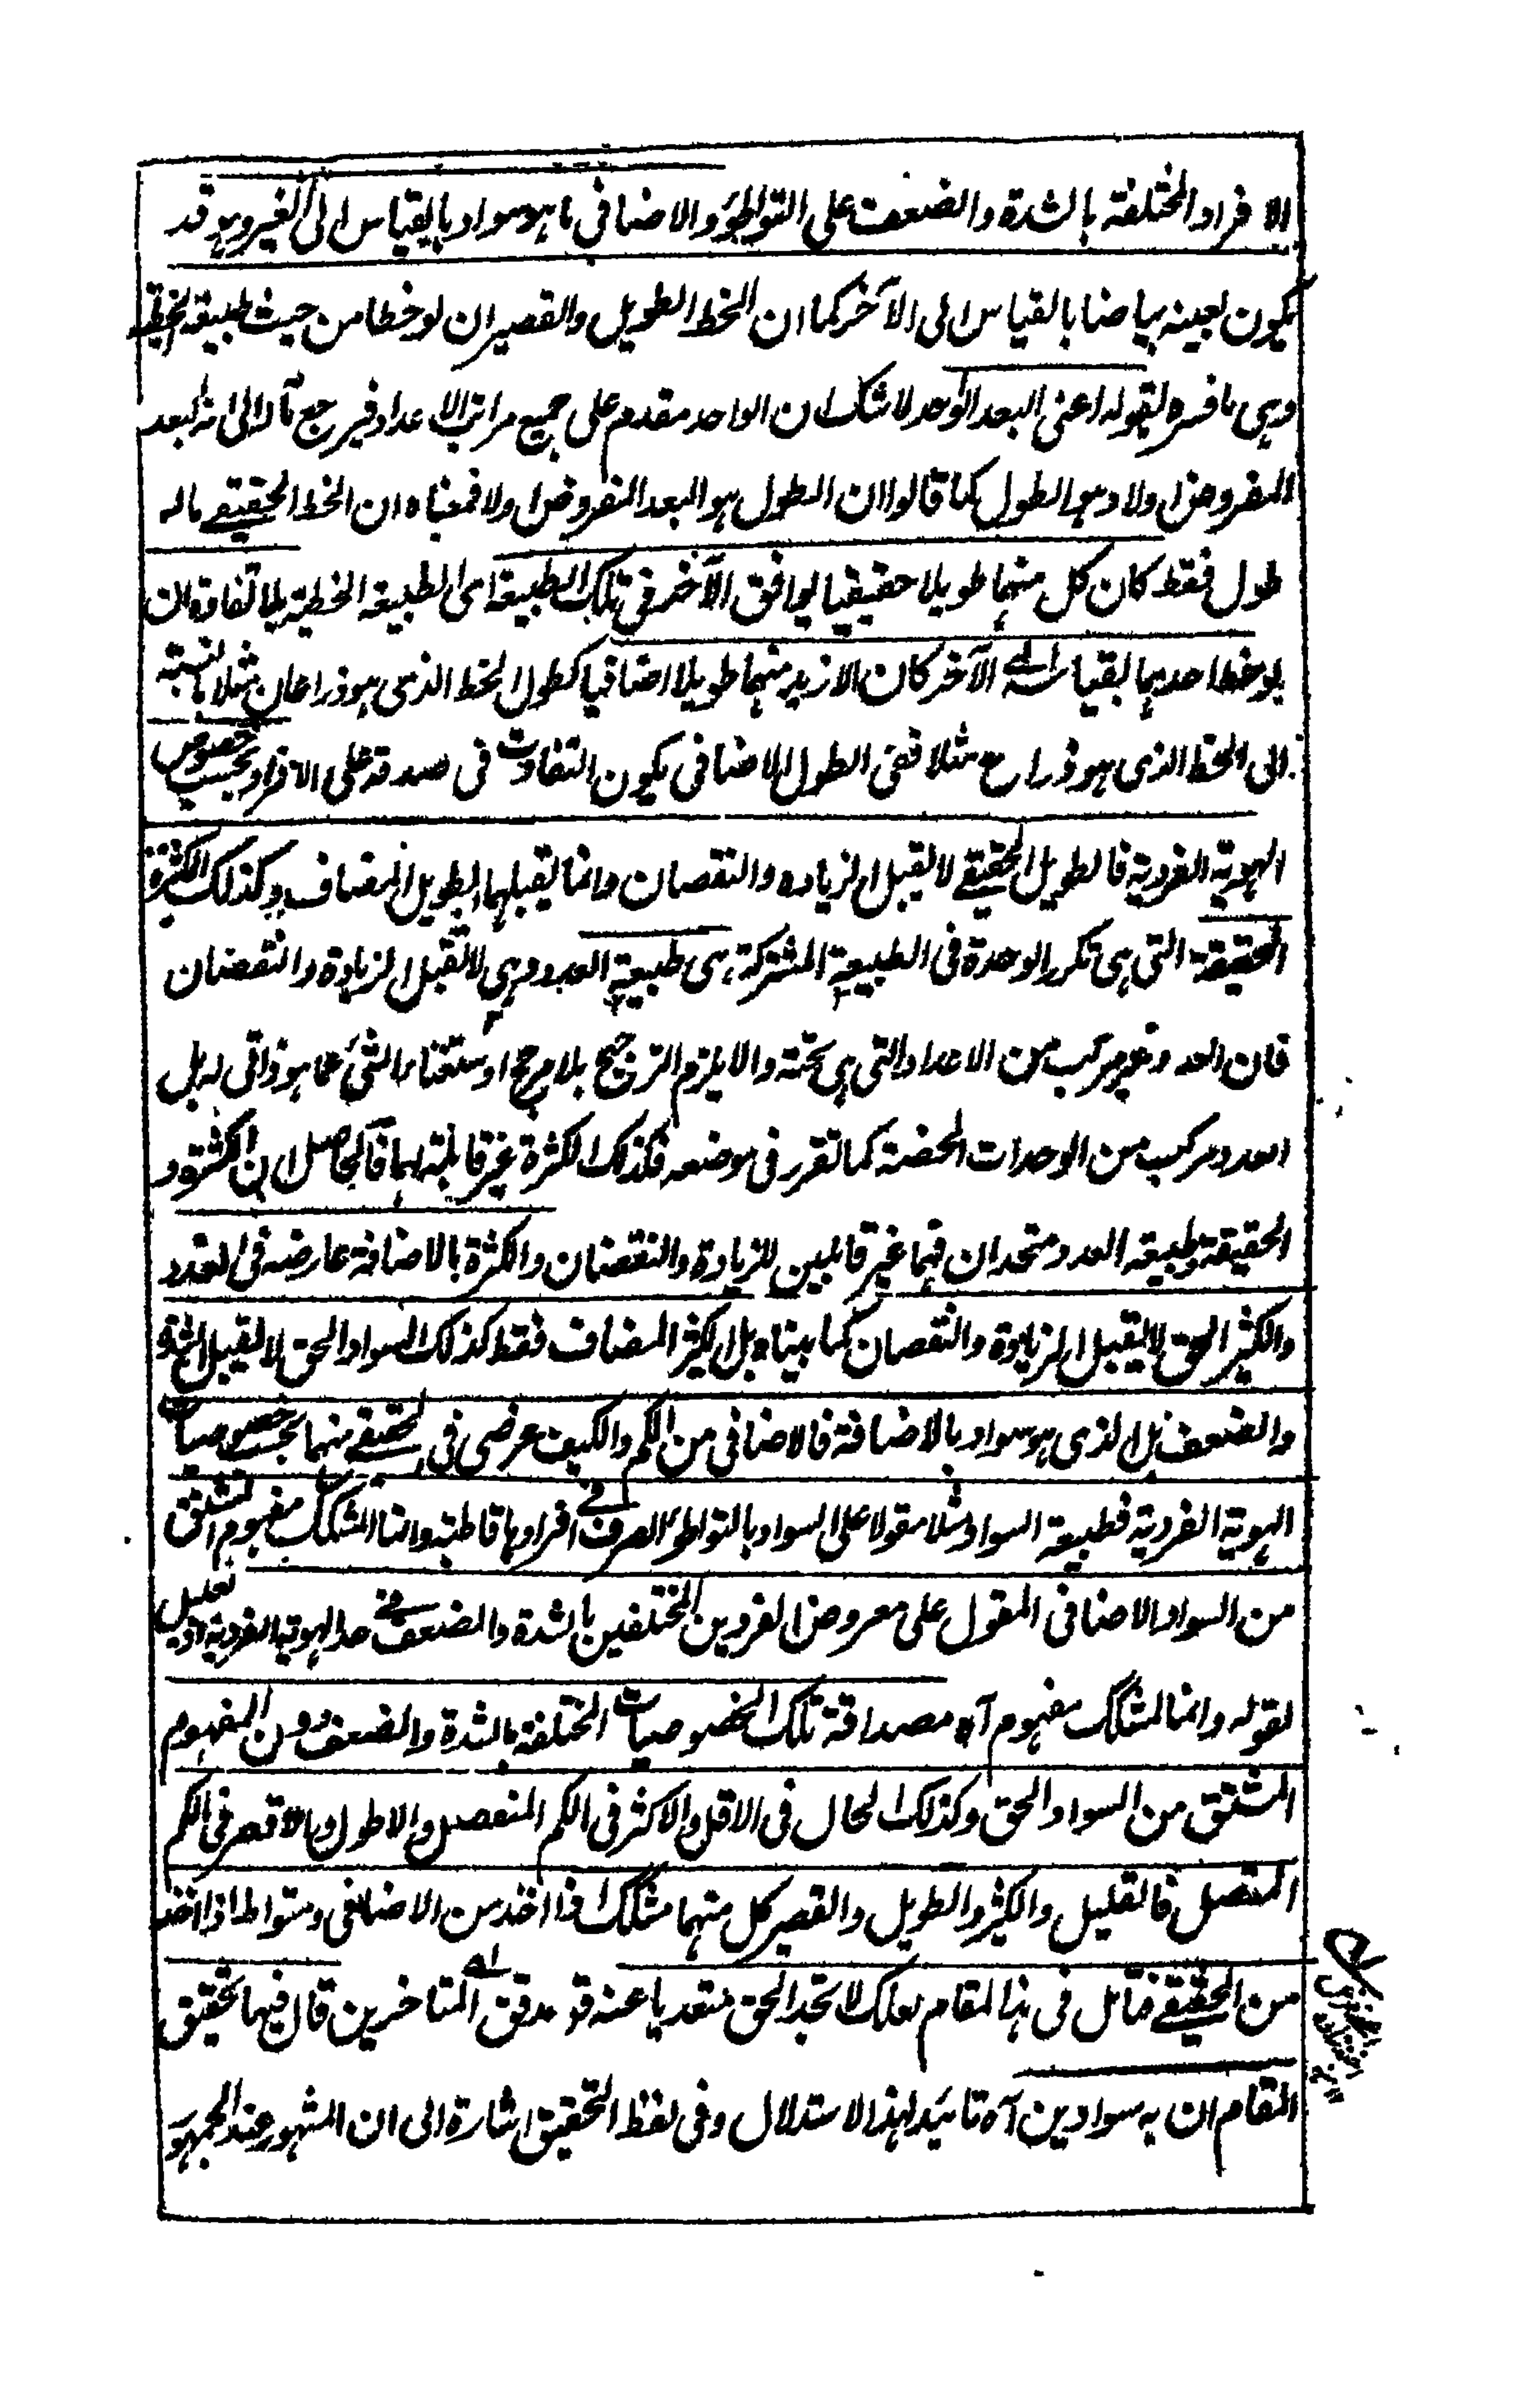 الافراد المختلفة بالشدة والضعف على التواطؤ والاضافى ما هو سواد بالقياس الى الغير وهو قد
يكون بعينه بياضا بالقياس الى الآخر كما ان الخط الطويل والقصير ان لوحظا من حيث طبيعة الخطية
وهى ما فسره بقوله اعنى البعد الواحد لا شك ان الواحد مقدم على جميع مراتب الاعداد فيرجع مآله الى انه البعد
المفروض اولا وهو الطول كما قالوا ان الطول هو البعد المفروض اولا فمعناه ان الخط الحقيقے ما له
طول فقط كان كل منهما طويلا حقيقيا يوافق الآخر فى تلك الطبيعة اى الطبيعة الخطية بلا تفاوة ان
لوحظ احدهما بقياسه الے الآخر كان الازيد منهما طويلا اضافيا كطول الخط الذى هو ذراعان مثلا بالنسبة
الى الخط الذى هو ذراع مثلا ففى الطول الاضافى يكون التفاوت فى صدقه على الافراد بحسب خصوص
الهوية الفردية فالطويل الحقيقے لا يقبل الزيادة والنقصان وانما يقبلهما الطويل المضاف وكذلك الكثرة
الحقيقة التى هى تكرر الوحدة فى الطبيعة المشتركة هى طبيعة العدد وهى لا تقبل الزيادة والنقصان
فان العدد غير مركب من الاعداد التى هى تحته والا يلزم الترجيح بلا مرجح او استغناء الشئ عما هو ذاتى له بل
العدد مركب من الوحدات المحضة كما تقرر فى موضعه فكذلك الكثرة غير قابلة لهما فالحاصل ان الكثرة
الحقيقة وطبيعة العدد متحدان فهما غير قابلين للزيادة والنقصان والكثرة بالاضافة عارضة فى العدد
والكثير الحق لا يقبل الزيادة والنقصان كما بيناه بل الكثير المضاف فقط كذلك السواد الحق لا يقبل الشدة
والضعف بل الذى هو سواد بالاضافة فالاضافى من الكم والكيف عرضى فى الحقيقے منهما بحسب خصوصيات
الهوية الفردية فطبيعة السواد مثلا مقولا على السواد بالتواطؤ الصرف فے افرادها قاطبة وانما المشكك مفهوم المشتق
من السواد الاضافى المقول على معروض الفردين المختلفين بالشدة والضعف فے حد الهوية الفردية تعليل
لقوله وانما المشكك مفهوم آه مصداقة تلك الخصوصيات المختلفة بالشدة والضعف دون المفهوم
المشتق من السواد الحق وكذلك الحال فى الاقل والاكثر فى الكم المنفصل والاطول والاقصر فى الكم
المتصل فالقليل والكثير والطويل والقصير كل منهما مشكك اذا اخذ من الاضافى ومتواط اذا اخذ
من الحقيقے فتامل فى هذا المقام لعلك لا تجد الحق متعديا عنه قوله مدقق المتاخرين قال فيها تحقيق
المقام ان به سوادين آه تائيد لهذا الاستدلال وفى لفظ التحقيق اشارة الى ان المشهور عند الجمهور